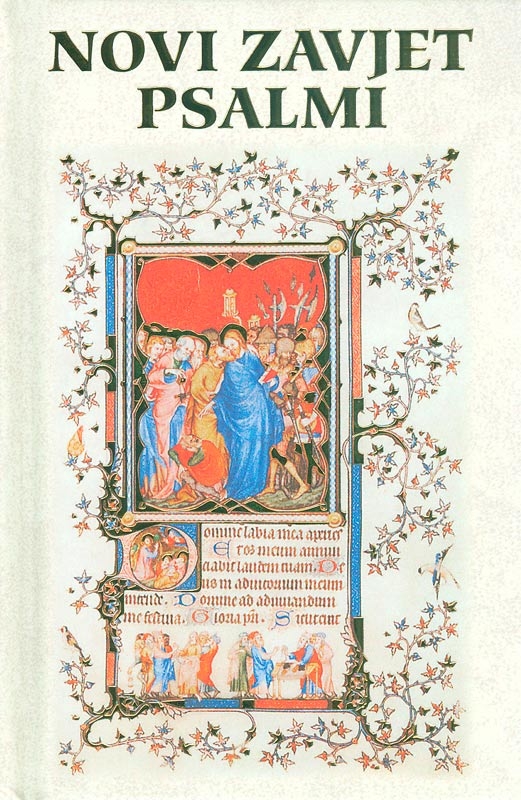 NOVI ZAVJET
PSALMI
omine labia mea aperies
Et os meum annun
ciabit laudem tuam. De
us in adiutorium meum
intende. Domine ad adiuuandum
me festina. Gloria pri. Sicut erat